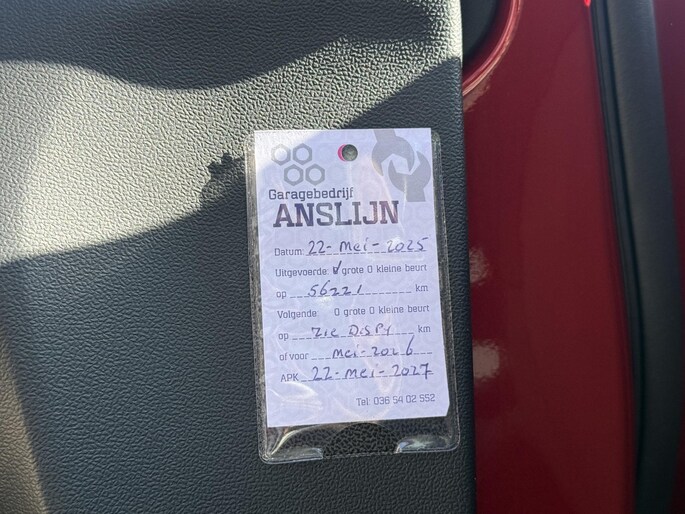 Garagebedrijf
ANSLIJN
Datum: 22-mei-2025
Uitgevoerde: 0 grote 0 kleine beurt
op 56221 km
Volgende: 0 grote 0 kleine beurt
op Zie DisPy km
of voor mei-2026
APK 22-mei-2027
Tel: 036 54 02 552